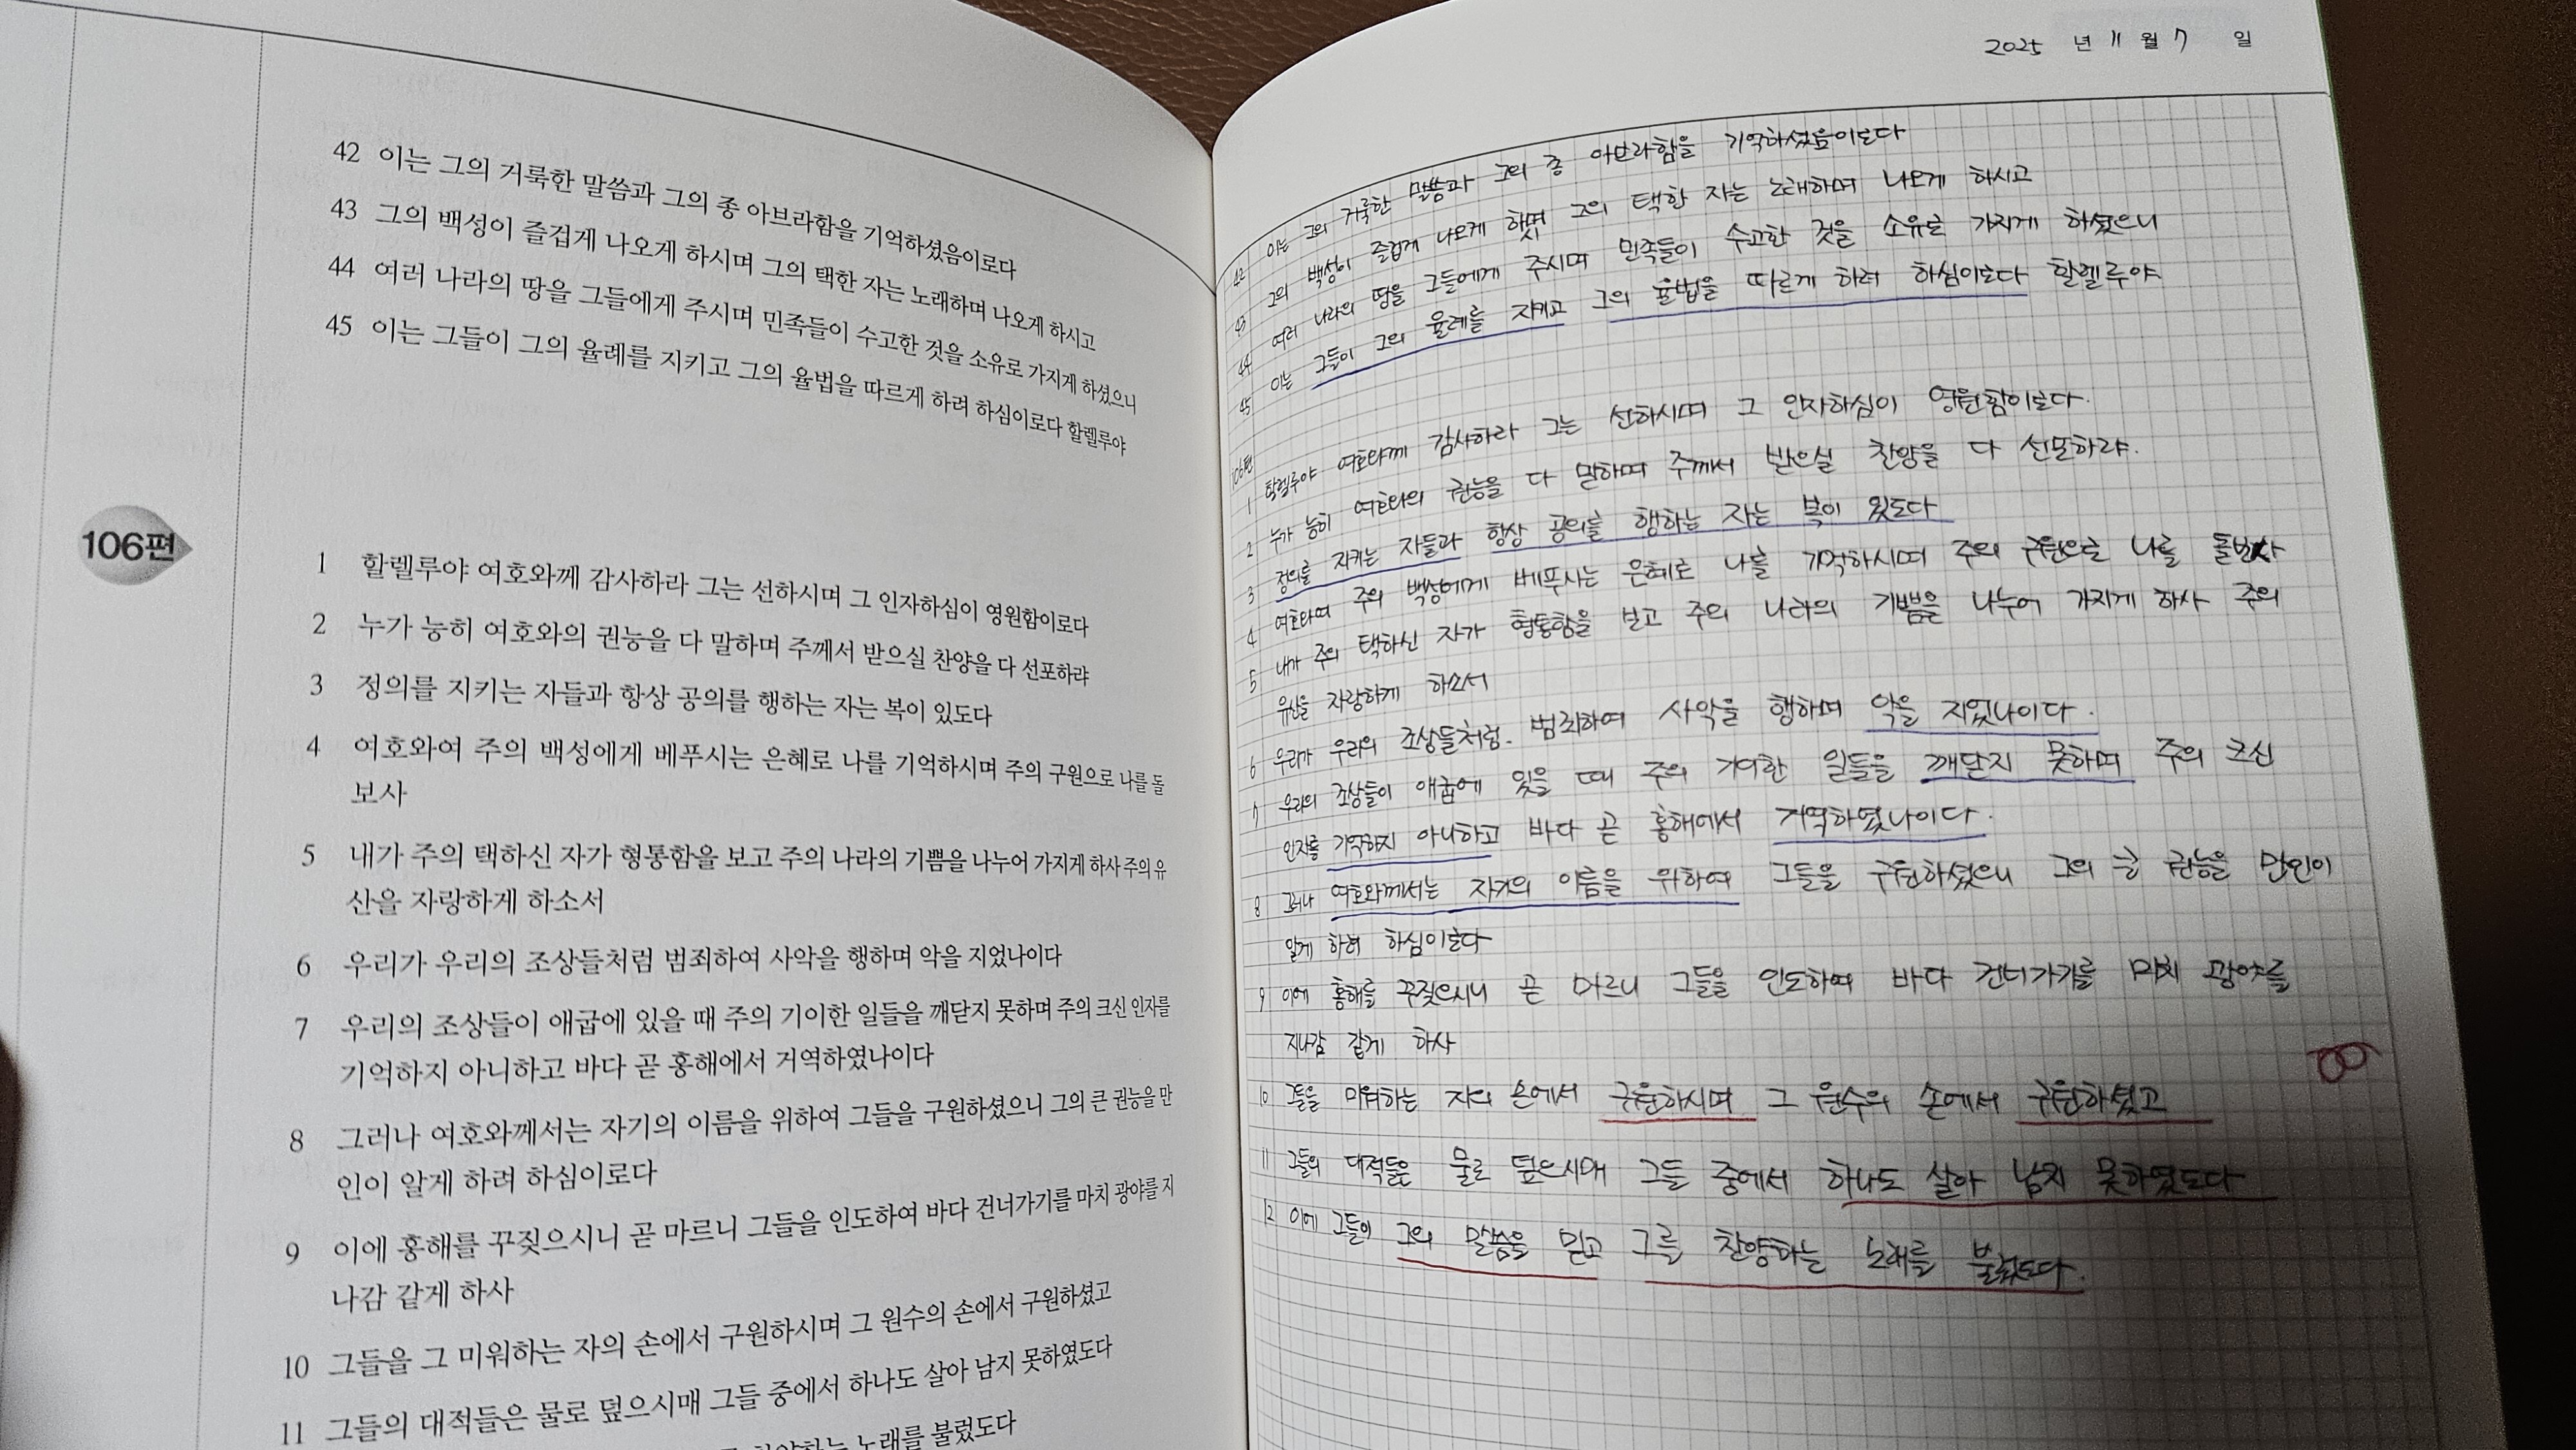 42 이는 그의 거룩한 말씀과 그의 종 아브라함을 기억하셨음이로다
43 그의 백성이 즐겁게 나오게 하시며 그의 택한 자는 노래하며 나오게 하시고
44 여러 나라의 땅을 그들에게 주시며 민족들이 수고한 것을 소유로 가지게 하셨으니
45 이는 그들이 그의 율례를 지키고 그의 율법을 따르게 하려 하심이로다 할렐루야
106편
1 할렐루야 여호와께 감사하라 그는 선하시며 그 인자하심이 영원함이로다
2 누가 능히 여호와의 권능을 다 말하며 주께서 받으실 찬양을 다 선포하랴
3 정의를 지키는 자들과 항상 공의를 행하는 자는 복이 있도다
4 여호와여 주의 백성에게 베푸시는 은혜로 나를 기억하시며 주의 구원으로 나를 돌
보사
5 내가 주의 택하신 자가 형통함을 보고 주의 나라의 기쁨을 나누어 가지게 하사 주의 유
산을 자랑하게 하소서
6 우리가 우리의 조상들처럼 범죄하여 사악을 행하며 악을 지었나이다
7 우리의 조상들이 애굽에 있을 때 주의 기이한 일들을 깨닫지 못하며 주의 크신 인자를
기억하지 아니하고 바다 곧 홍해에서 거역하였나이다
8 그러나 여호와께서는 자기의 이름을 위하여 그들을 구원하셨으니 그의 큰 권능을 만
인이 알게 하려 하심이로다
9 이에 홍해를 꾸짖으시니 곧 마르니 그들을 인도하여 바다 건너가기를 마치 광야를 지
나감 같게 하사
10 그들을 그 미워하는 자의 손에서 구원하시며 그 원수의 손에서 구원하셨고
11 그들의 대적들은 물로 덮으시매 그들 중에서 하나도 살아 남지 못하였도다
노래를 불렀도다
2025 년 11 월 7 일
42 이는 그의 거룩한 말씀과 그의 종 아브라함을 기억하셨음이로다
43 그의 백성이 즐겁게 나오게 하시며 그의 택한 자는 노래하며 나오게 하시고
44 여러 나라의 땅을 그들에게 주시며 민족들이 수고한 것을 소유로 가지게 하셨으니
45 이는 그들이 그의 율례를 지키고 그의 율법을 따르게 하려 하심이로다 할렐루야
106편
1 할렐루야 여호와께 감사하라 그는 선하시며 그 인자하심이 영원함이로다.
2 누가 능히 여호와의 권능을 다 말하며 주께서 받으실 찬양을 다 선포하랴.
3 정의를 지키는 자들과 항상 공의를 행하는 자는 복이 있도다
4 여호와여 주의 백성에게 베푸시는 은혜로 나를 기억하시며 주의 구원으로 나를 돌보사
5 내가 주의 택하신 자가 형통함을 보고 주의 나라의 기쁨을 나누어 가지게 하사 주의
유산을 자랑하게 하소서
6 우리가 우리의 조상들처럼. 범죄하여 사악을 행하며 악을 지었나이다.
7 우리의 조상들이 애굽에 있을 때 주의 기이한 일들을 깨닫지 못하며 주의 크신
인자를 기억하지 아니하고 바다 곧 홍해에서 거역하였나이다.
8 그러나 여호와께서는 자기의 이름을 위하여 그들을 구원하셨으니 그의 큰 권능을 만인이
알게 하려 하심이로다
9 이에 홍해를 꾸짖으시니 곧 마르니 그들을 인도하여 바다 건너가기를 마치 광야를
지나감 같게 하사
10 그들을 미워하는 자의 손에서 구원하시며 그 원수의 손에서 구원하셨고
11 그들의 대적들은 물로 덮으시매 그들 중에서 하나도 살아 남지 못하였도다
12 이에 그들이 그의 말씀을 믿고 그를 찬양하는 노래를 불렀도다.